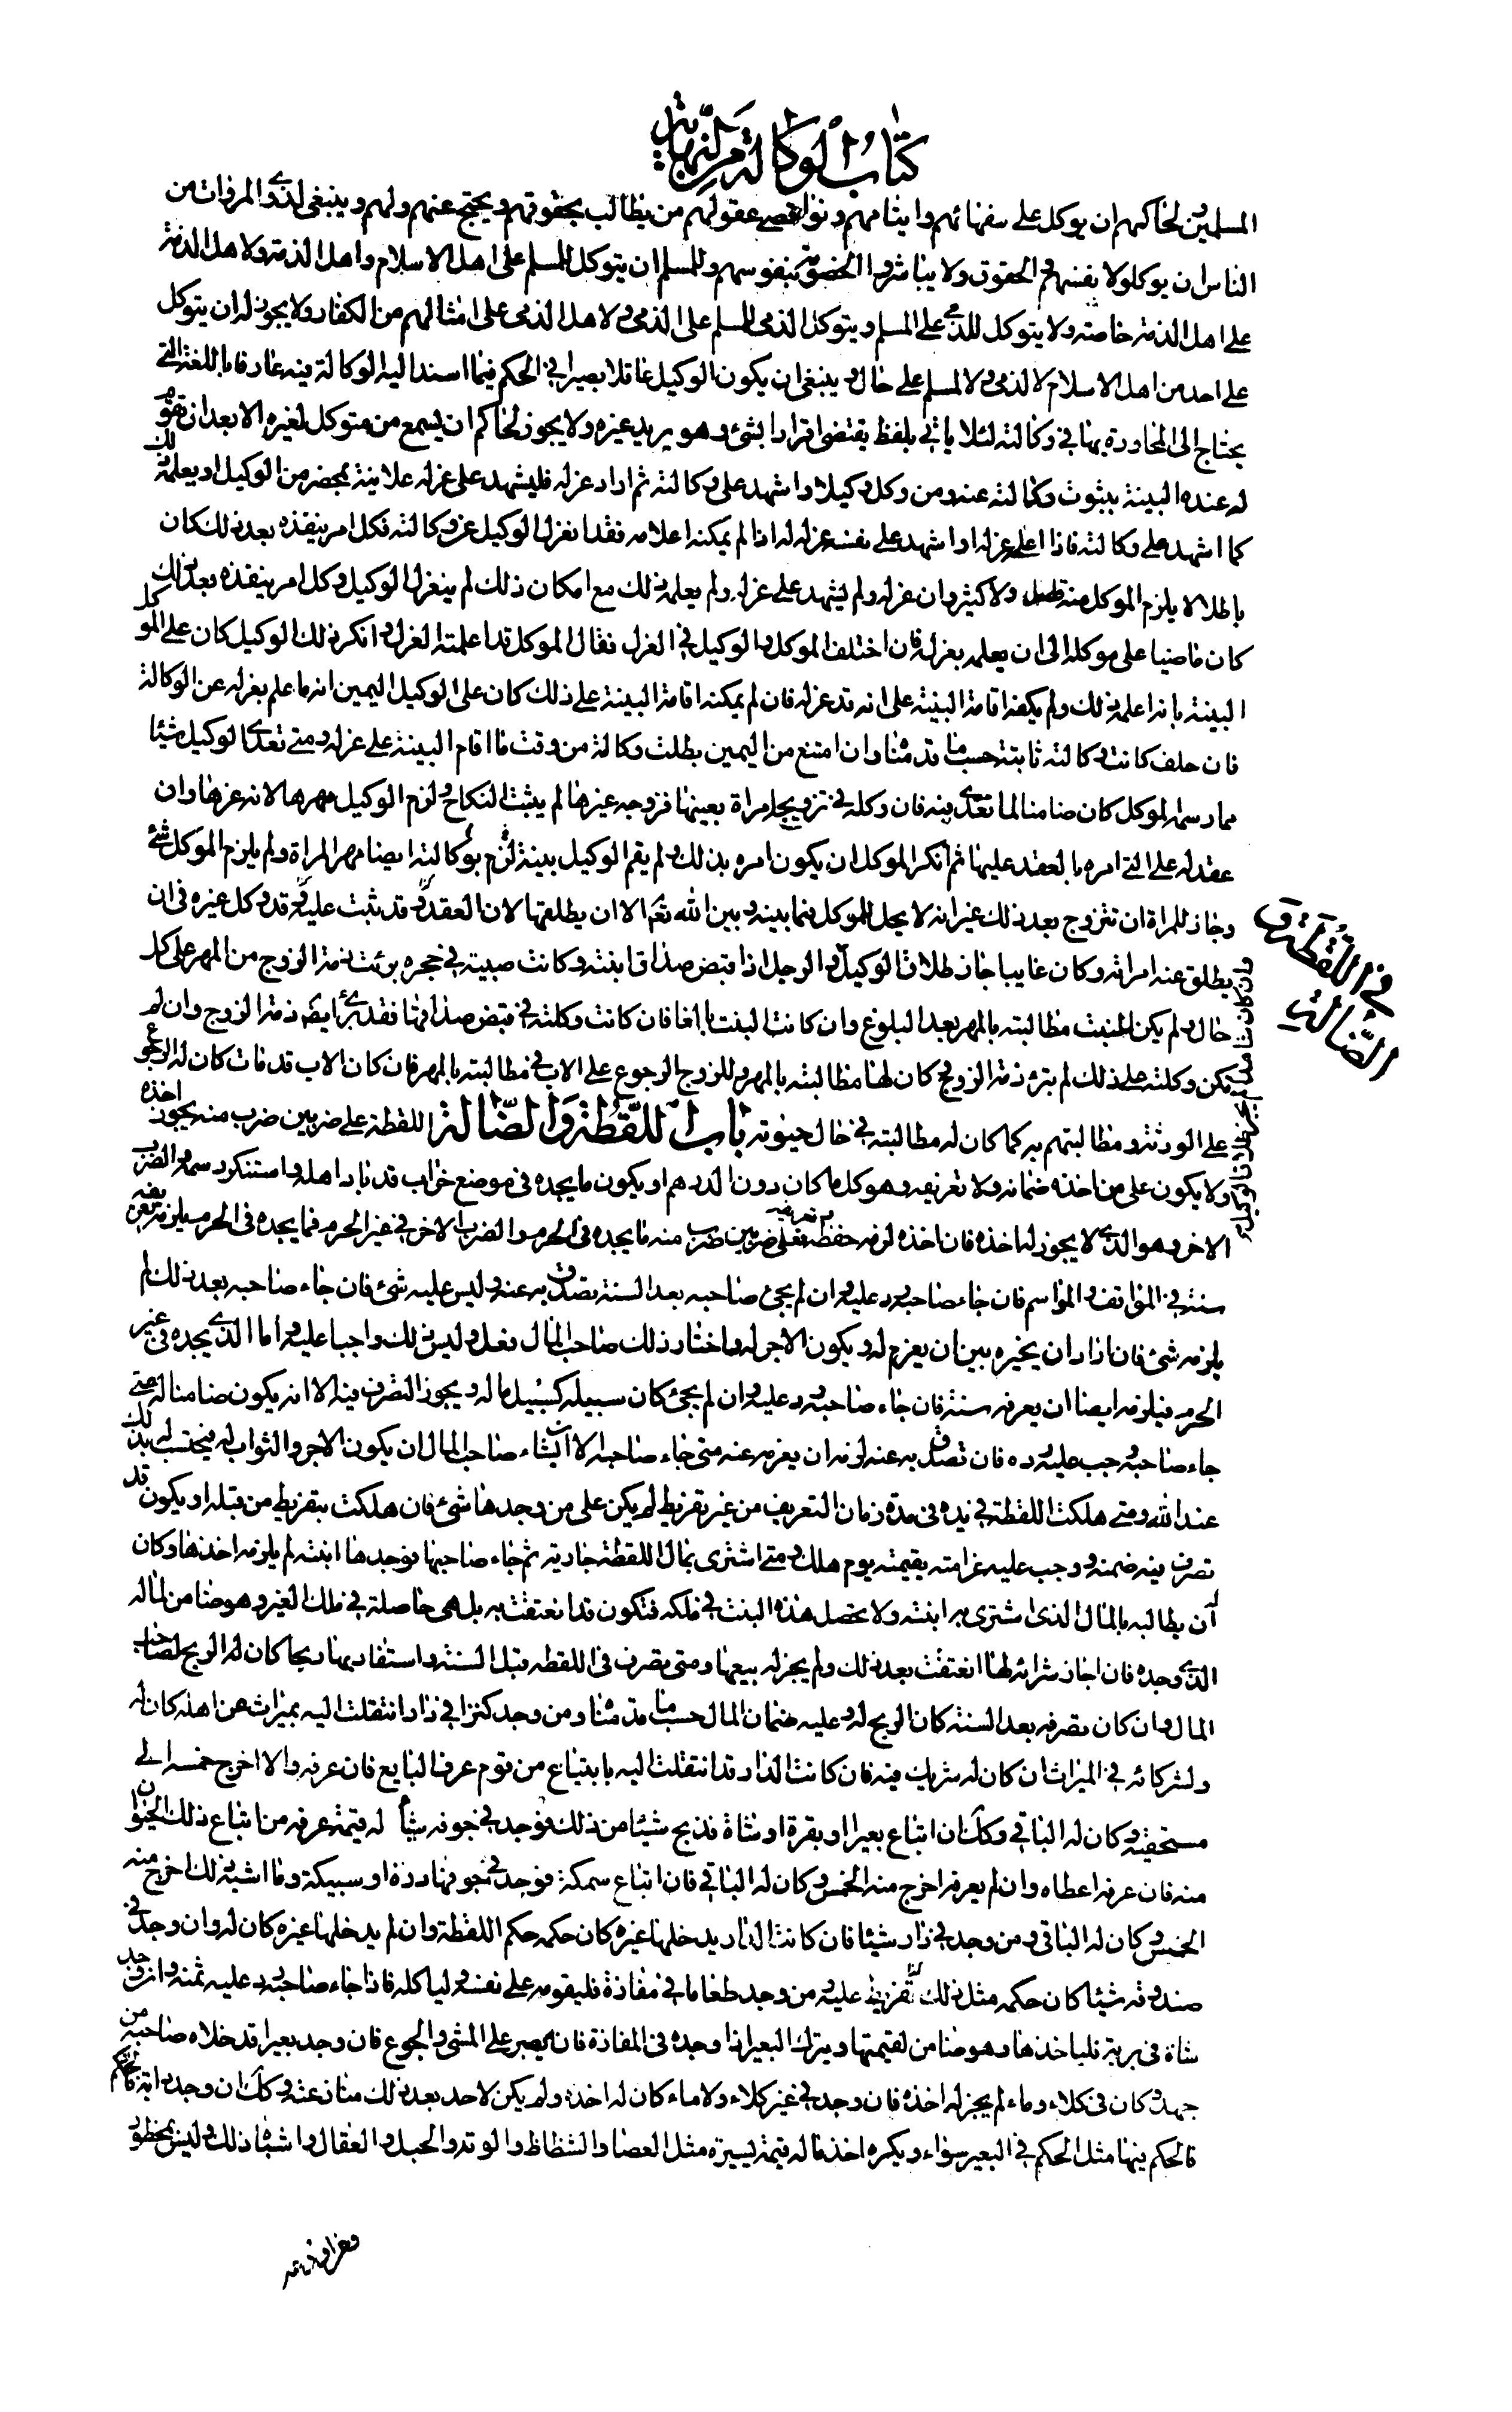 كتاب الوكالة من النهاية
المسلمين لحاكمهم ان يوكل على سفهائهم وايتامهم ونواقصى عقولهم من يطالب بحقوقهم ويحتج عنهم ولهم وينبغى لذوى المروات من
الناس ان يوكلوا لانفسهم فى الحقوق ولا يباشروا الخصومة بنفوسهم وللمسلم ان يتوكل للمسلم على اهل الاسلام واهل الذمة ولاهل الذمة
على اهل الذمة خاصة ولا يتوكل للذمى على المسلم ويتوكل الذمى للمسلم على الذمى ولاهل الذمى على امثالهم من الكفار ولا يجوز له ان يتوكل
على احد من اهل الاسلام لا لذمى ولا لمسلم على حال وينبغى ان يكون الوكيل عاقلا بصيرا فى الحكم فيما اسند اليه الوكالة فيه عارفا باللغة التى
يحتاج الى المحاورة بها فى وكالته لئلا ياتى بلفظ يقتضى اقرارا بشئ وهو يريد غيره ولا يجوز لحاكم ان يسمع من متوكل لغيره الا بعد ان تقوم
له عنده البينة بثبوت وكالته عنه ومن وكل وكيلا واشهد على وكالته ثم اراد عزله فليشهد على عزله علانية بمحضر من الوكيل او يعلمه ذلك
كما اشهد على وكالته فاذا اعلمه عزله او اشهد على نفسه بعزله له اذا لم يمكنه اعلامه فقد انعزل الوكيل عن وكالته فكل امر ينفذه بعد ذلك كان
باطلا لا يلزم الموكل منه قليل ولا كثير وان عزله ولم يشهد على عزله ولم يعلمه ذلك مع امكان ذلك لم ينعزل الوكيل وكل امر ينفذه بعد ذلك
كان ماضيا على موكله الى ان يعلمه بعزله فان اختلف الموكل والوكيل فى العزل فقال الموكل قد اعلمته العزل وانكر ذلك الوكيل كان على الموكل
البينة بانه اعلمه ذلك ولم يكفه اقامة البينة على انه قد عزله فان لم يمكنه اقامة البينة على ذلك كان على الوكيل اليمين انه ما علم بعزله عن الوكالة
فان حلف كانت وكالته ثابتة حسب ما قدمناه وان امتنع من اليمين بطلت وكالة من وقت ما اقام البينة على عزله ومتى تعدى الوكيل شيئا
مما رسمه الموكل كان ضامنا لما تعدى فيه فان وكله فى تزويج امراة بعينها فزوجه غيرها لم يثبت النكاح ولزم الوكيل مهرها لانه غرها وان
عقد له على التى امره بالعقد عليها ثم انكر الموكل ان يكون امره بذلك ولم يقم الوكيل بينة بوكالته لزمه ايضا مهر المراة ولم يلزم الموكل شئ
وجاز للمراة ان تتزوج بعد ذلك غير انه لا يحل للموكل فيما بينه وبين الله تعم الا ان يطلقها لان العقد قد ثبت عليه ومن وكل غيره فى ان
يطلق عنه امراته وكان غايبا جاز طلاق الوكيل والرجل اذا قبض صداق ابنته وكانت صبية فى حجره برئت ذمة الزوج من المهر على كل
حال ولم يكن للبنت مطالبته بالمهر بعد البلوغ وان كانت البنت بالغا فان كانت وكلته فى قبض صداقها فقد برئ ايضا ذمة الزوج وان لم
تكن وكلته على ذلك لم تبرء ذمة الزوج كان لها مطالبته بالمهر وللزوج الرجوع على الاب فى مطالبته بالمهر فان كان الاب قد مات كان له الرجوع
على الورثة ومطالبتهم به كما كان له مطالبته فى حال حيوته باب اللقطة والضالة اللقطة على ضربين ضرب منه يجوز اخذه
ولا يكون على من اخذه ضمانه ولا تعريفه وهو كل ما كان دون الدرهم او يكون ما يجده فى موضع خراب قد باد اهله واستنكر رسمه والضرب
الاخر وهو الذى لا يجوز له اخذه فان اخذه لزمه حفظه وتعريفه فعلى ضربين ضرب منه ما يجده فى الحرم والضرب الاخر فى غير الحرم فما يجده فى الحرم يلزمه تعريفه
سنة فى المواقف والمواسم فان جاء صاحبه رد عليه وان لم يجئ صاحبه بعد السنة تصدق به عنه وليس عليه شئ فان جاء صاحبه بعد ذلك لم
يلزمه شئ فان اراد ان يخيره بين ان يغرم له ويكون الاجر له واختار ذلك صاحب المال فعل وليس ذلك واجبا عليه واما الذى يجده فى غير
الحرم فيلزمه ايضا ان يعرفه سنة فان جاء صاحبه رد عليه وان لم يجئ كان سبيله كسبيل ماله ويجوز التصرف فيه الا انه يكون ضامنا له متى
جاء صاحبه وجب عليه رده فان تصدق به عنه لزمه ان يغرمه عنه متى جاء صاحبه الا ان يشاء صاحب المال ان يكون الاجر والثواب له فيحتسب له بذلك
عند الله ومتى هلكت اللقطة فى يده فى مدة زمان التعريف من غير تفريط لم يكن على من وجدها شئ فان هلكت بتفريط من قبله او يكون قد
تصرف فيه ضمنه ووجب عليه غرامته بقيمته يوم هلك ومتى اشترى بمال اللقطة جارية ثم جاء صاحبها فوجدها ابنته لم يلزمه اخذها وكان له
ان يطالبه بالمال الذى اشترى به ابنته ولا تحصل هذه البنت فى ملكه فتكون قد انعتقت به بل هى حاصلة فى ملك الغير وهو ضامن لماله
الذى وجده فان اجاز شرائه لها انعتقت بعد ذلك ولم يجز له بيعها ومتى تصرف فى اللقطه قبل السنة واستفاد بها ربحا كان له الربح لصاحب
المال وان كان تصرفه بعد السنة كان الربح له وعليه ضمان المال حسب ما قدمناه ومن وجد كنزا فى دار انتقلت اليه بميراث عن اهله كان له
ولشركائه فى الميراث ان كان له شريك فيه فان كانت الدار قد انتقلت اليه بابتياع من قوم عرف البايع فان عرفه والا اخرج خمسه الى
مستحقيه وكان له الباقى وكك ان ابتاع بعيرا او بقرة او شاة فذبح شيئا من ذلك فوجد فى جوفه شيئا له قيمة عرفه من ابتاع ذلك الحيوان
منه فان عرفه اعطاه وان لم يعرفه اخرج منه الخمس وكان له الباقى فان ابتاع سمكة فوجد فى جوفها درة او سبيكة وما اشبه ذلك اخرج منه
الخمس وكان له الباقى ومن وجد فى دار شيئا فان كانت الدار يدخلها غيره كان حكمه حكم اللقطة وان لم يدخلها غيره كان له وان وجد فى
صندوقه شيئا كان حكمه مثل ذلك عليه ومن وجد طعاما فى مفازة فليقومه على نفسه ولياكله فاذا جاء صاحبه رد عليه ثمنه وان وجد
شاة فى برية فلياخذها وهو ضامن لقيمتها ويترك البعير اذا وجده فى المفازة فان يصبر على المشى والجوع فان وجد بعيرا قد خلاه صاحبه من
جهد وكان فى كلاء وماء لم يجز له اخذه فان وجده فى غير كلاء ولا ماء كان له اخذه ولم يكن لاحد بعد ذلك منازعته وكك ان وجد دابة
فالحكم فيها مثل الحكم فى البعير سواء ويكره اخذ ماله قيمة يسيرة مثل العصا والشظاظ والوتد والحبل والعقال واشباه ذلك وليس بمحظور
فى اللقطة و
الضالة